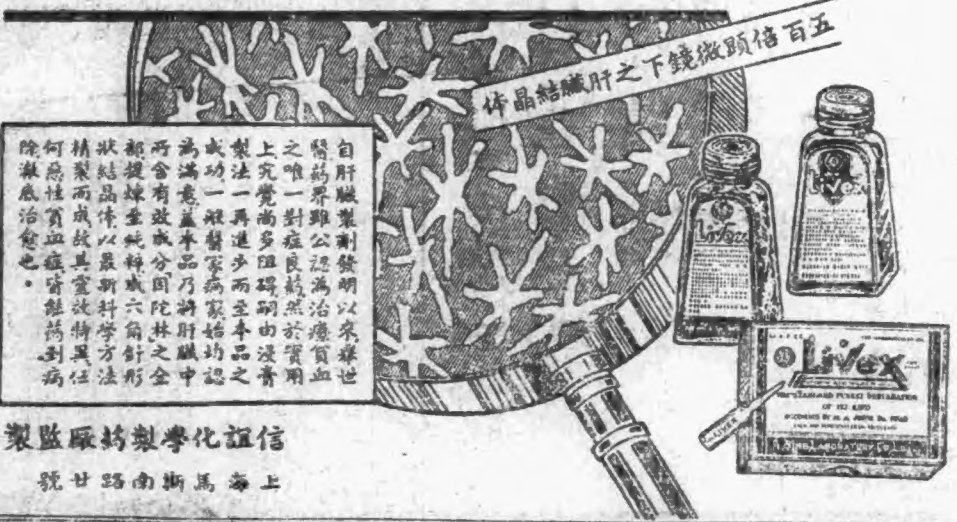 五百倍顕微鏡下之肝臟結晶体
自肝臟製劑發明以來舉世
醫葯界雖公認為治療貧血
之唯一對症良葯然於實用
上究覺尚多阻碍嗣由浸膏
製法一再進步而至本品之
成功一般醫家病家始均認
為滿意蓋本品乃將肝臟中
所含有效成分「因陀林」之全
部提煉至純粹成六角針形
狀結晶体以最新科學方法
精製而成故其靈效特異任
何惡性貧血症皆能葯到病
除澈底治愈也。
Livex
Livex
Livex
THE STANDARD PUREST PREPARATION
OF ITS KIND
信誼化學製葯廠監製
上海馬斯南路廿號